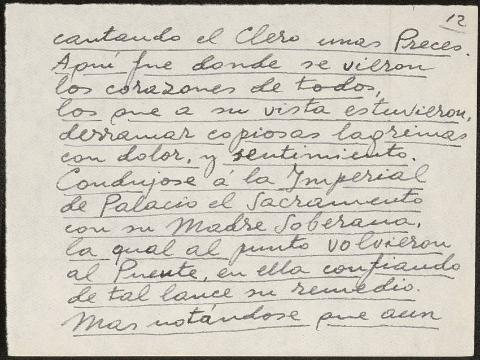 12
cantando el Clero unas Preces.
Aquí fue donde se vieron
los corazones de todos,
los que a su vista estuvieron,
derramar copiosas lagrimas
con dolor, y sentimiento.
Condujose á la Imperial
de Palacio el Sacramento
con su Madre Soberana,
la qual al punto volvieron
al Puente, en ella confiando
de tal lance su remedio.
Mas notándose que aun